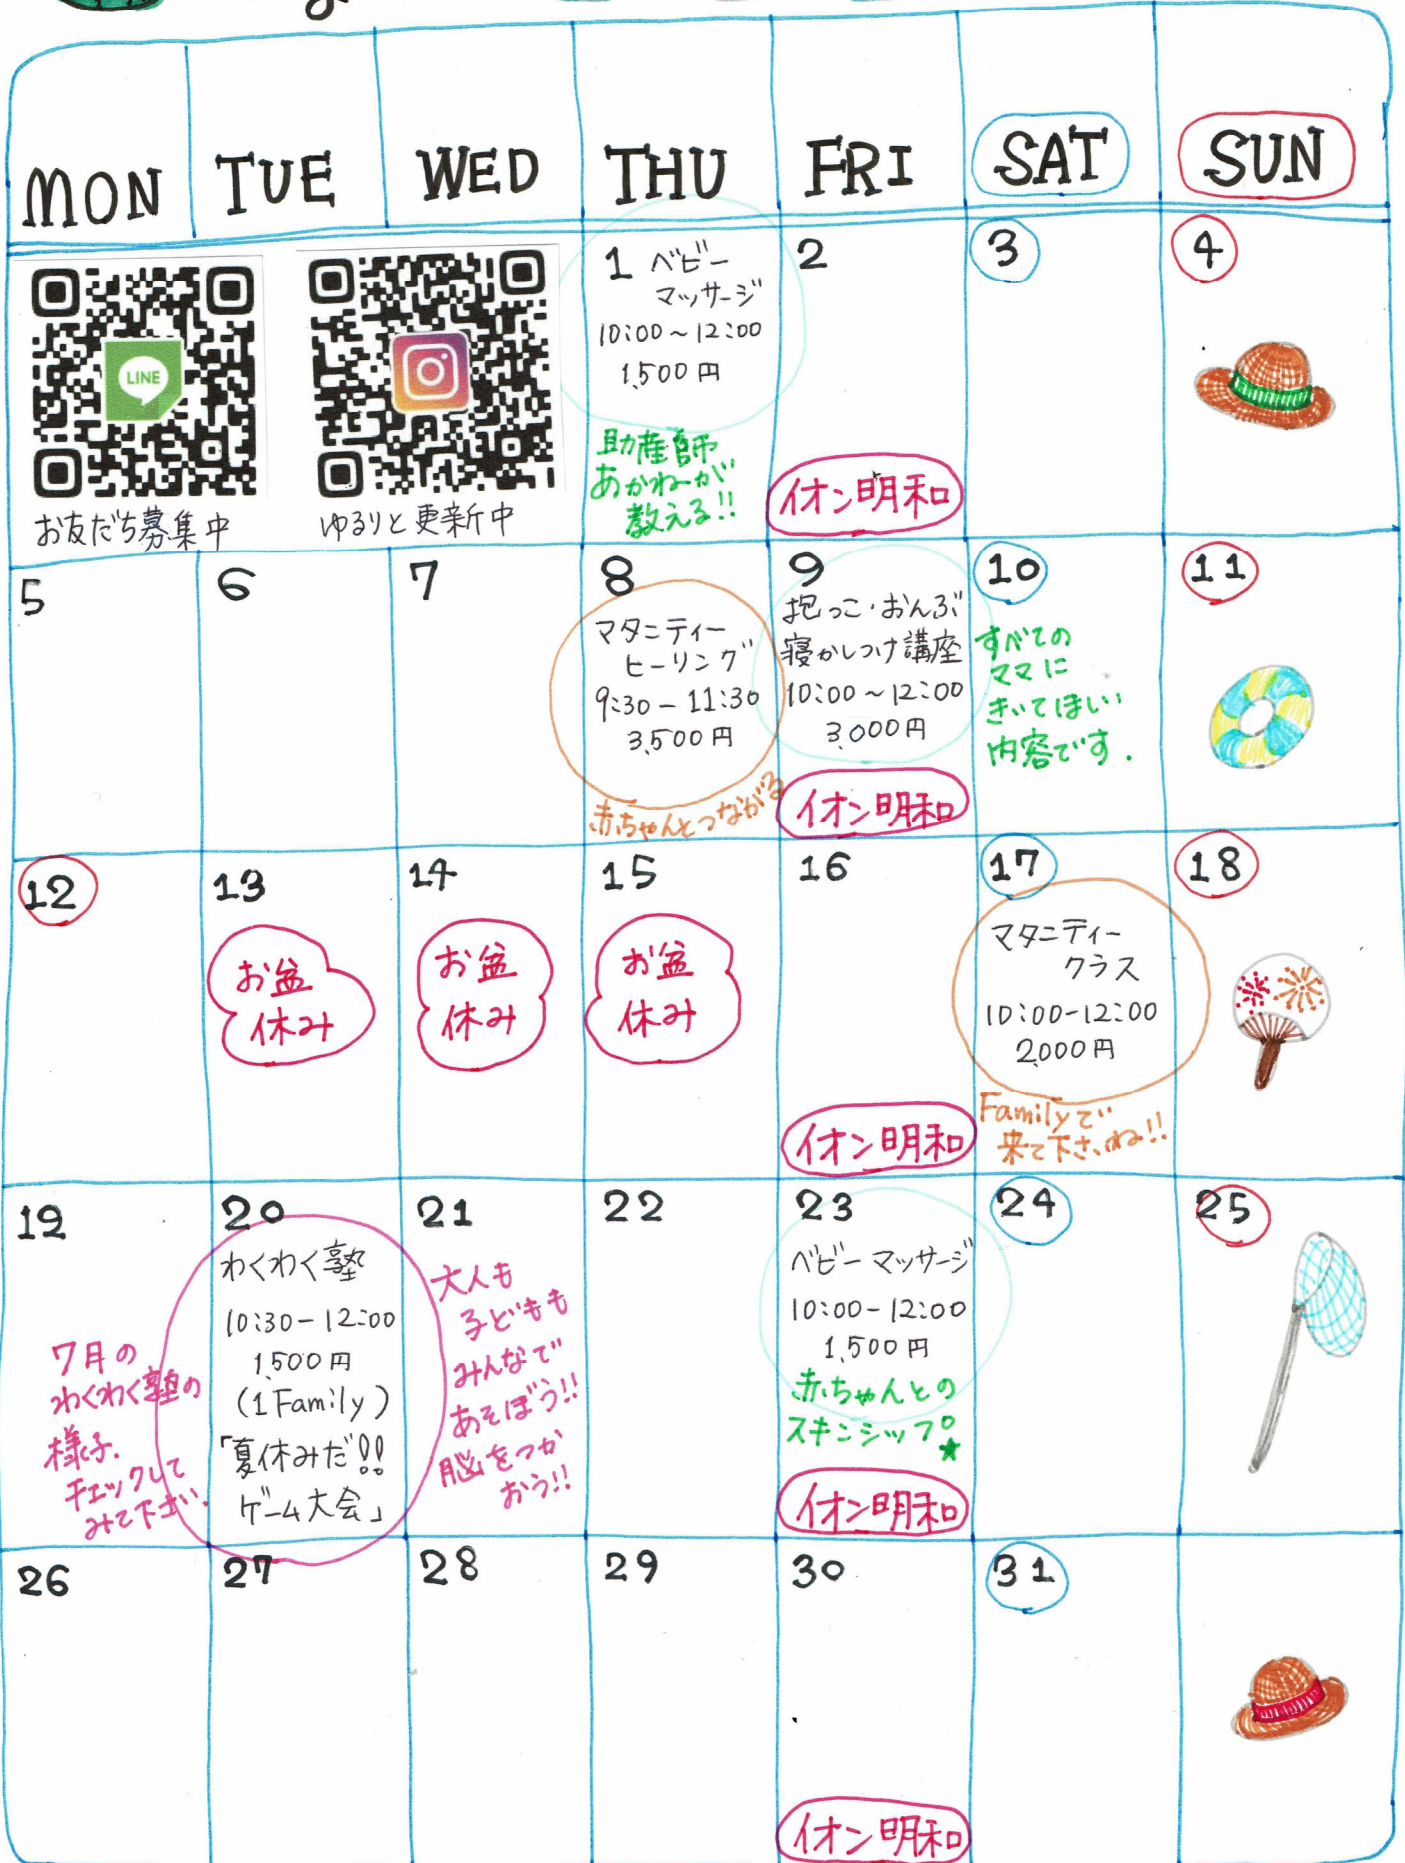 MON TUE WED THU FRI SAT SUN
LINE
お友だち募集中
ゆるりと更新中
1 ベビー
マッサージ
10:00〜12:00
1,500円
助産師
あかねーが
教える!!
2
イオン明和
3
4
5
6
7
8
マタニティー
ヒーリング
9:30-11:30
3,500円
赤ちゃんとつながる
9
抱っこ・おんぶ
寝かしつけ講座
10:00〜12:00
3,000円
イオン明和
10
すべての
ママに
きいてほしい
内容です.
11
12
13
お盆
休み
14
お盆
休み
15
お盆
休み
16
イオン明和
17
マタニティー
クラス
10:00-12:00
2,000円
Familyで
来て下さいね!!
18
19
7月の
わくわく塾の
様子.
チェックして
みて下さい.
20
わくわく塾
10:30-12:00
1,500円
(1Family)
「夏休みだ!!
ゲーム大会」
21
大人も
子どもも
みんなで
あそぼう!!
脳をつか
おう!!
22
23
ベビーマッサージ
10:00-12:00
1,500円
赤ちゃんとの
スキンシップ★
イオン明和
24
25
26
27
28
29
30
イオン明和
31